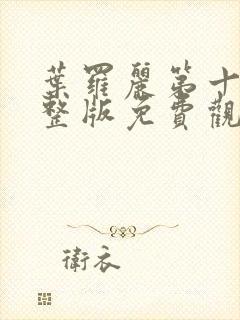 葉羅麗第十
整版免費觀
衛衣